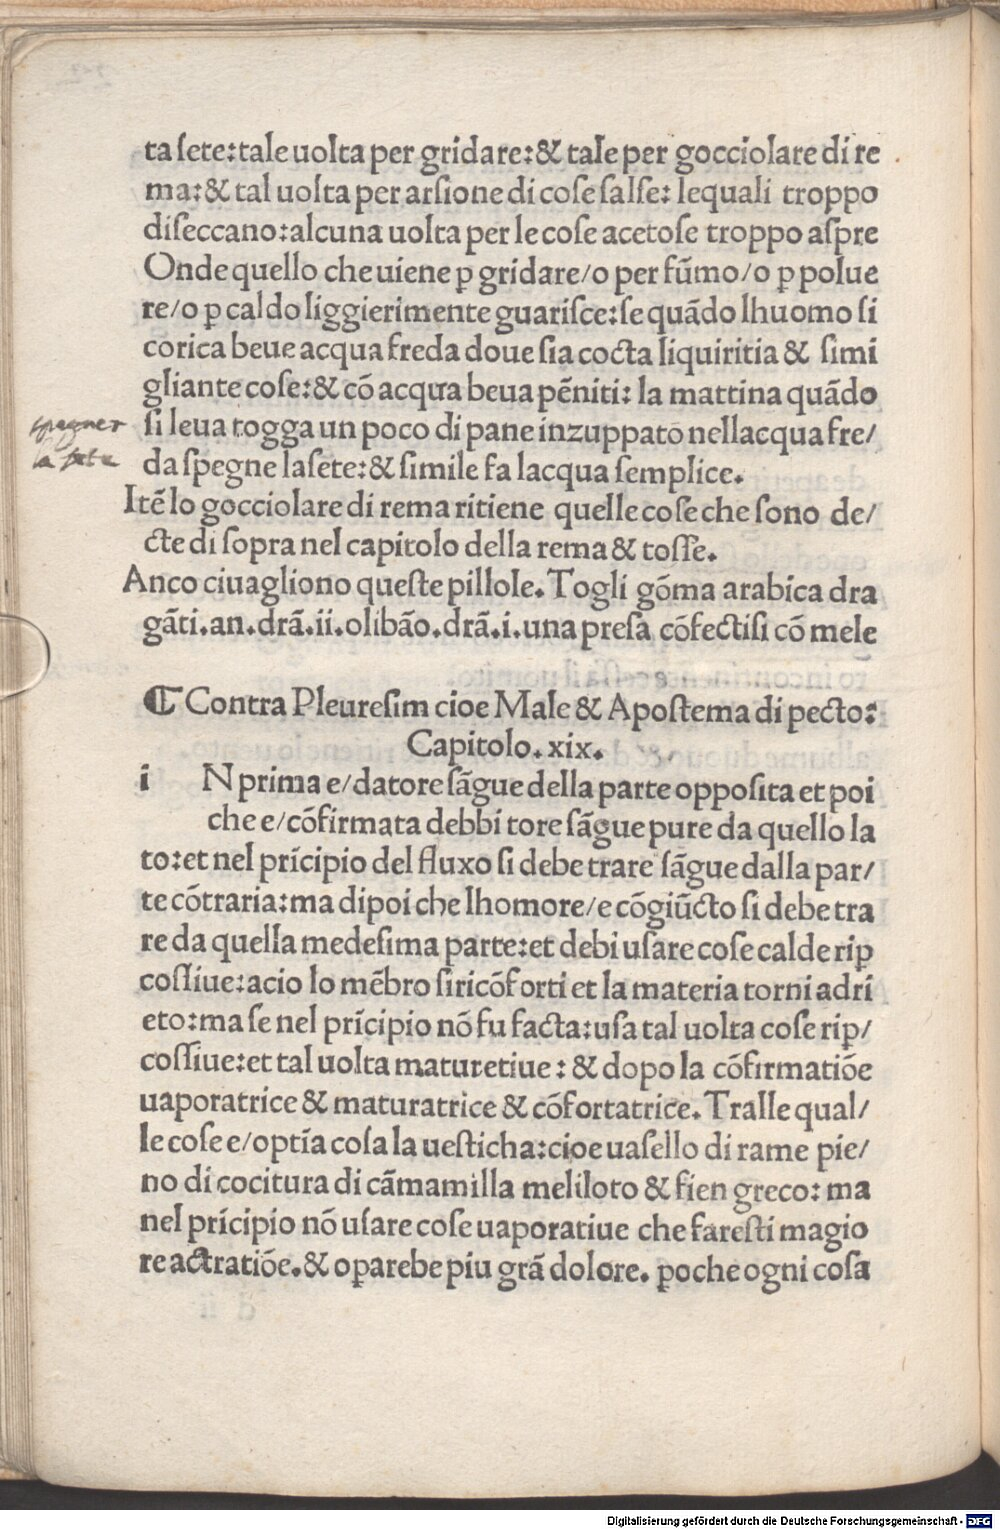 ta ſete:tale uolta per gridare:& tale per gocciolare di re
ma:& tal uolta per arſione di coſe ſalſe: lequali troppo
diſeccano:alcuna uolta per le coſe acetoſe troppo aſpre
Onde quello che uiene ꝑ gridare/o per fũmo/o ꝑ polue
re/o ꝑ caldo liggierimente guariſce:ſe quãdo lhuomo ſi
corica beue acqua freda doue ſia cocta liquiritia & ſimi
gliante coſe:& cõ acqua beua pẽniti: la mattina quãdo
ſi leua togga un poco di pane inzuppato nellacqua fre/
da ſpegne laſete:& ſimile fa lacqua ſemplice.
spegner
la sete
Itẽ lo gocciolare di rema ritiene quelle coſe che ſono de/
cte di ſopra nel capitolo della rema & toſſe.
Anco ciuagliono queſte pillole. Togli gõma arabica dra
gãti.an.drã.ii.olibão.drã.i.una preſa cõfectiſi cõ mele
⁋ Contra Pleureſim cioe Male & Apoſtema di pecto:
Capitolo.xix.
i N prima e/datore ſãgue della parte oppoſita et poi
che e/cõfirmata debbi tore ſãgue pure da quello la
to:et nel prĩcipio del fluxo ſi debe trare ſãgue dalla par/
te cõtraria:ma dipoi che lhomore/e cõgiũcto ſi debe tra
re da quella medeſima parte:et debi uſare coſe calde riꝑ
coſſiue:acio lo mẽbro ſi ricõforti et la materia torni adri
eto:ma ſe nel prĩcipio nõ fu facta:uſa tal uolta coſe riꝑ/
coſſiue:et tal uolta maturetiue: & dopo la cõfirmatiõe
uaporatrice & maturatrice & cõfortatrice. Tralle qual/
le coſe e/optĩa coſa la ueſticha:cioe uaſello di rame pie/
no di cocitura di cãmamilla meliloto & fien greco: ma
nel prĩcipio nõ uſare coſe uaporatiue che fareſti magio
re actratiõe.& oꝑarebe piu grã dolore. ꝑoche ogni coſa
Digitalisierung gefördert durch die Deutsche Forschungsgemeinschaft - DFG